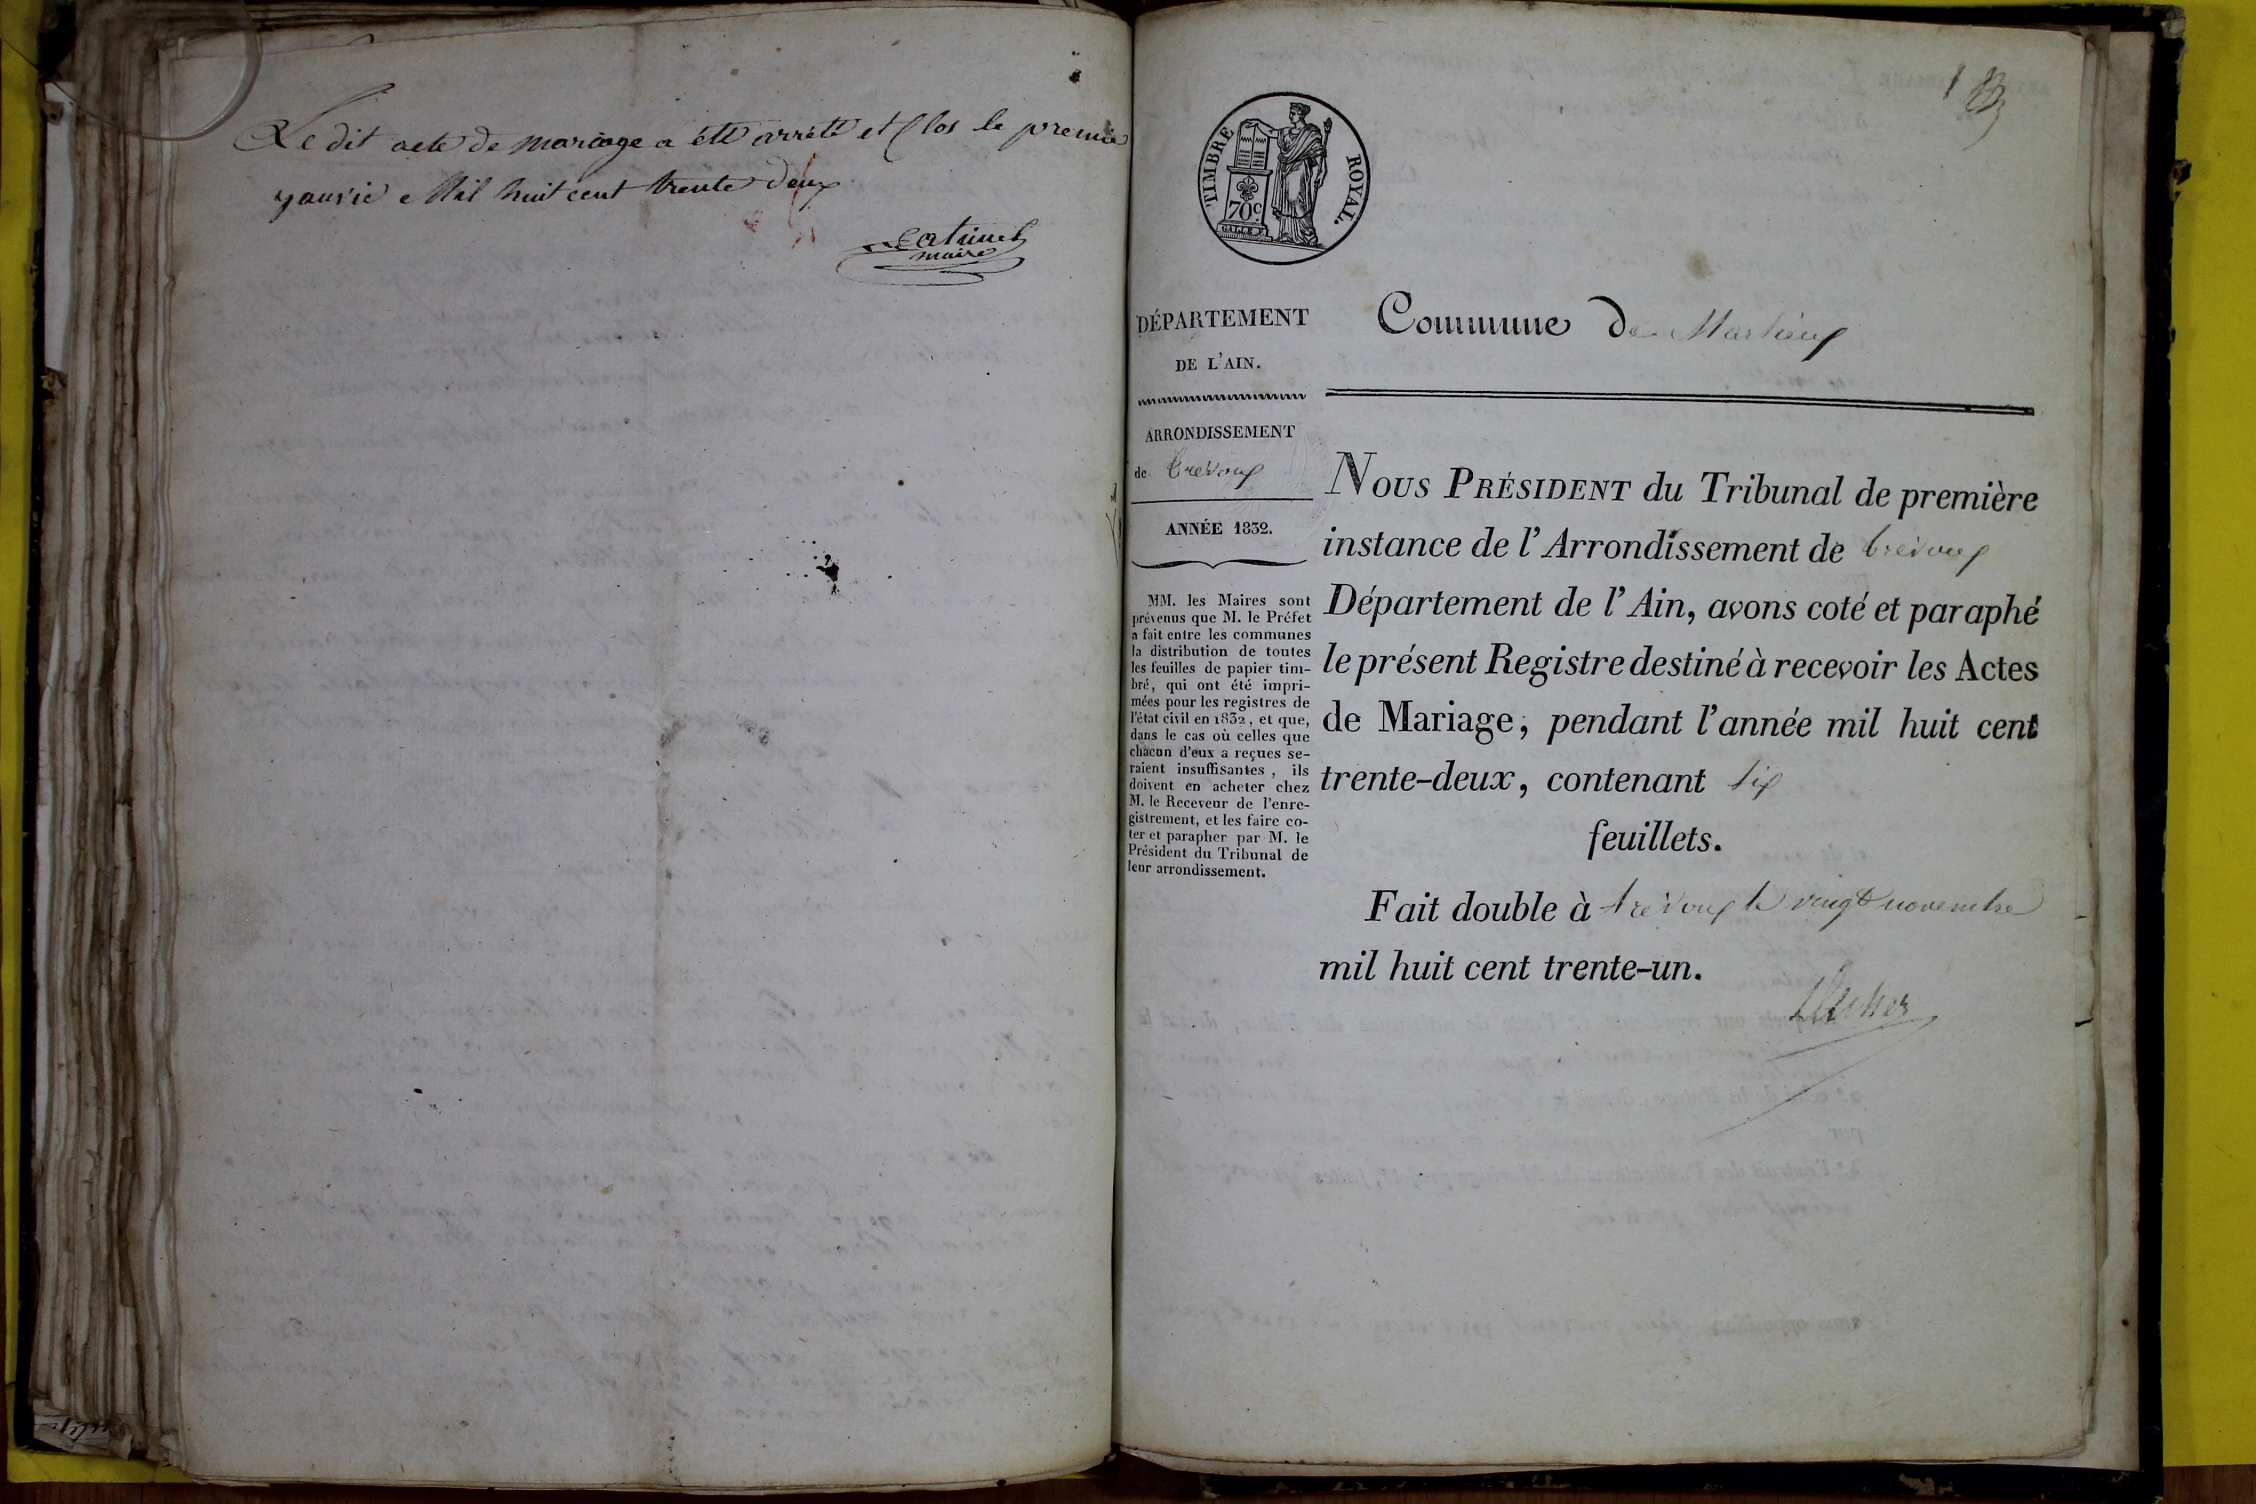 Le dit acte de mariage a été arrêté et Clos le premie
janvie Mil huit cent trente deux
maire
1
TIMBRE ROYAL.
70 c.
DÉPARTEMENT
DE L'AIN.
ARRONDISSEMENT
de trevoux
ANNÉE 1832.
MM. les Maires sont
prévenus que M. le Préfet
a fait entre les communes
la distribution de toutes
les feuilles de papier tim-
bré, qui ont été impri-
mées pour les registres de
l'état civil en 1832, et que,
dans le cas où celles que
chacun d'eux a reçues se-
raient insuffisantes, ils
doivent en acheter chez
M. le Receveur de l'enre-
gistrement, et les faire co-
ter et parapher par M. le
Président du Tribunal de
leur arrondissement.
Commune de Marlieux
NOUS PRÉSIDENT du Tribunal de première
instance de l'Arrondissement de trevoux
Département de l'Ain, avons coté et paraphé
le présent Registre destiné à recevoir les Actes
de Mariage, pendant l'année mil huit cent
trente-deux, contenant six
feuillets.
Fait double à trevoux le vingt novembre
mil huit cent trente-un.